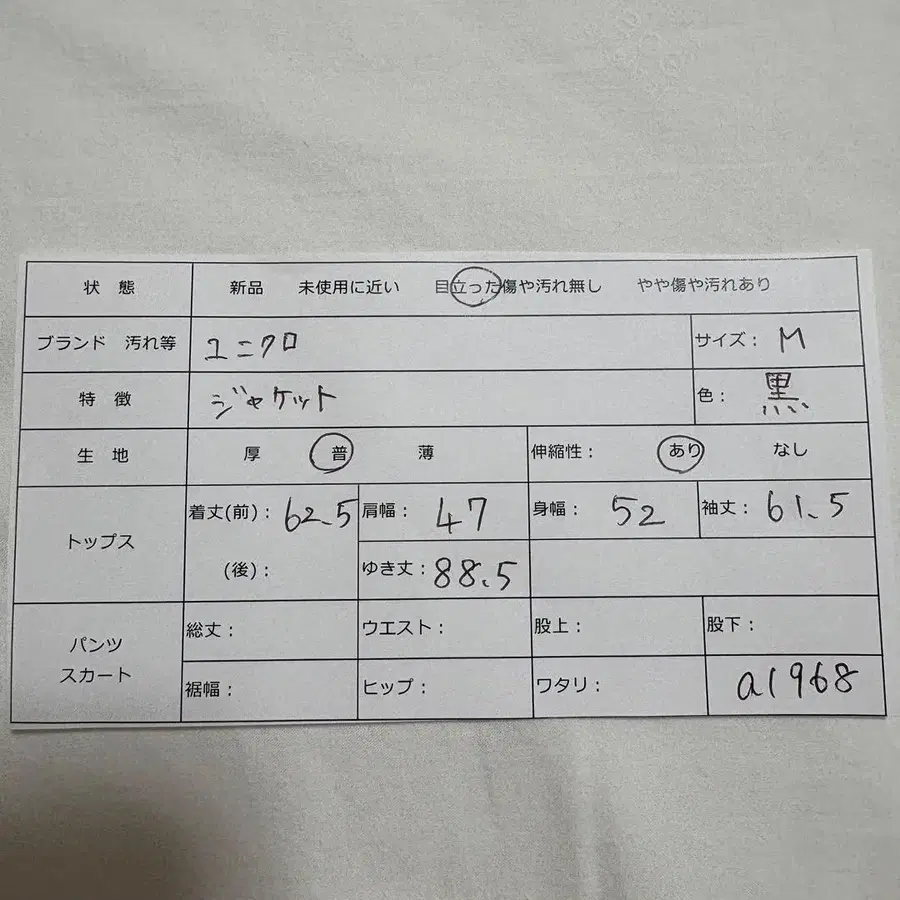 状 態 新品 未使用に近い 目立った傷や汚れ無し やや傷や汚れあり
ブランド 汚れ等 ユニクロ サイズ： M
特 徴 ジャケット 色： 黒
生 地 厚 普 薄 伸縮性： あり なし
トップス 着丈(前)： 62.5 肩幅： 47 身幅： 52 袖丈： 61.5
(後)： ゆき丈： 88.5
パンツ スカート 総丈： ウエスト： 股上： 股下：
裾幅： ヒップ： ワタリ： a1968